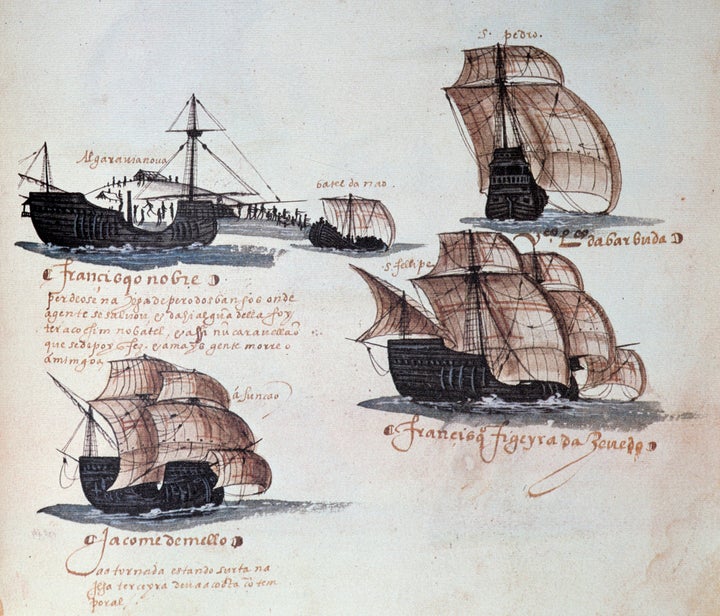 S. pedro.
Algaravianova
batel da nao.
da barbuda
s. fellipe
francisqo nobre
perdeose na Jopa de pero dos bansos onde
agente se salvou, e dasi algua della foy
ter a cochim no batel, e assi nũ caravellaõ
que se depoy fes. e a mays gente morreo
á mimgoa
á sũncaõ
françisqo figeyra da Zevedo
Jacome de mello
aa tornada estando surta na
Jlha terceyra deu aa costa cõ tem
poral